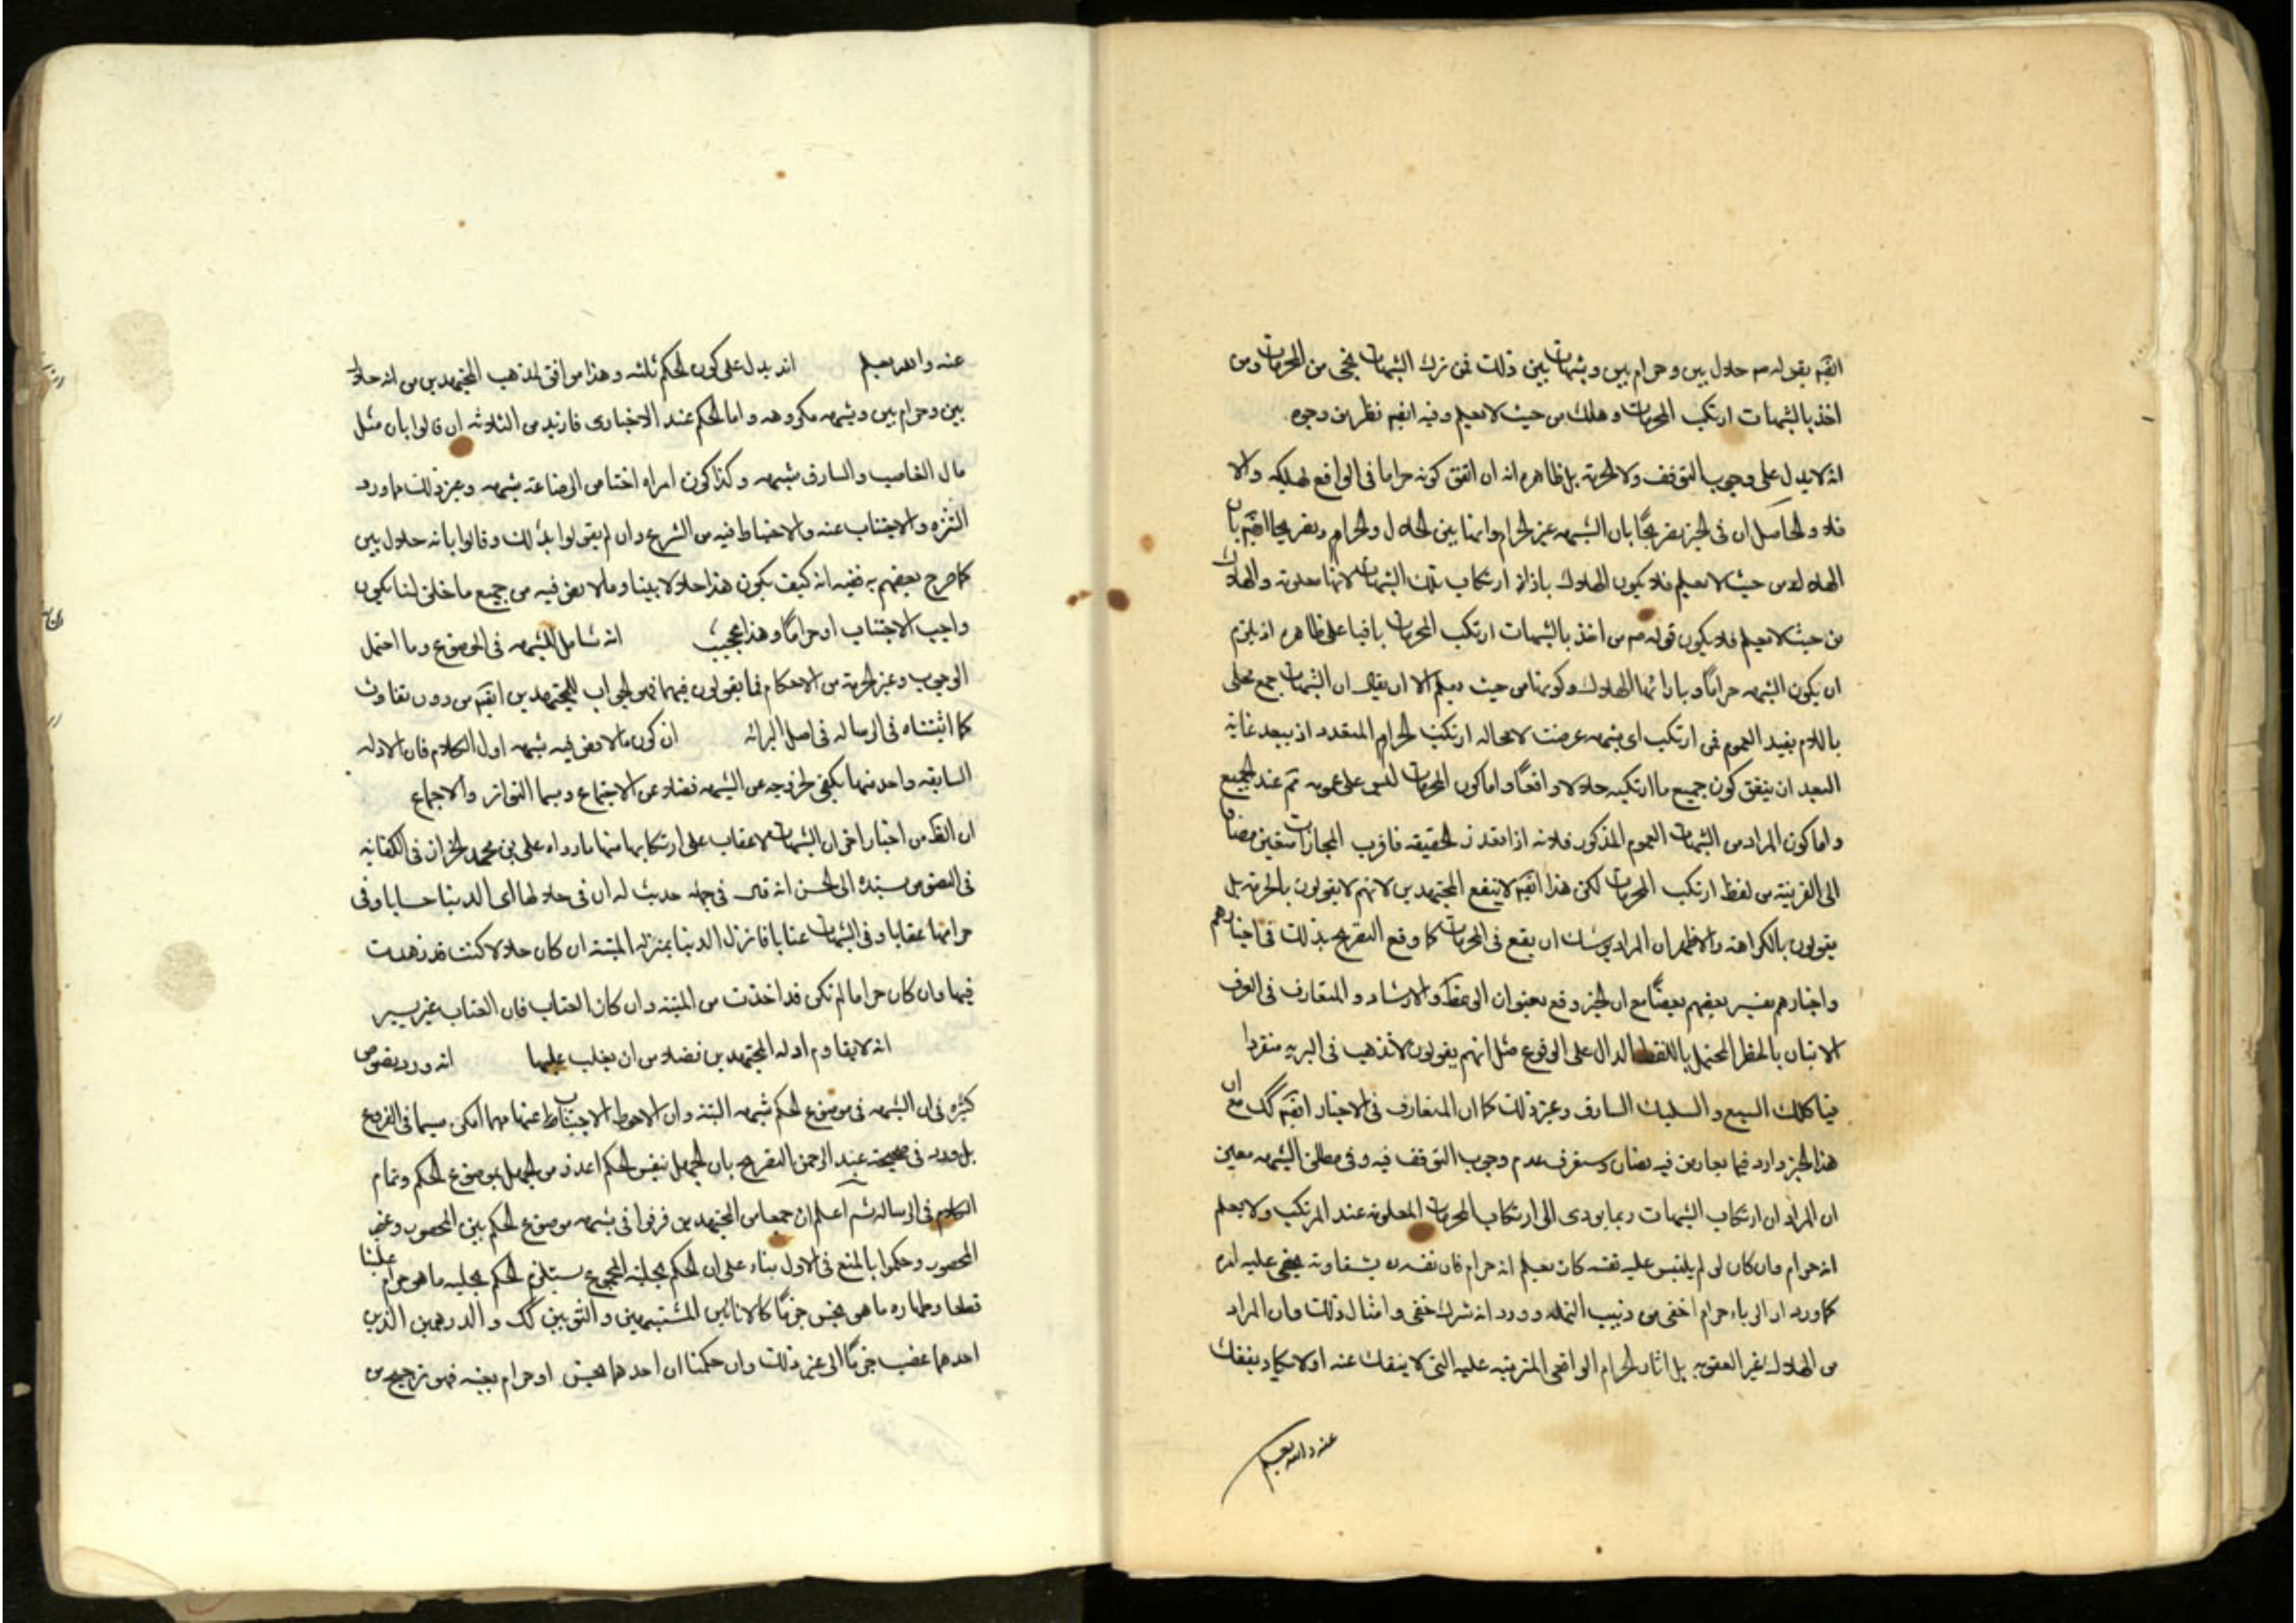 ايضا بقوله ص حلال بين وحرام بين وشبهات بين ذلك فمن ترك الشبهات نجى من المحرمات ومن
اخذ بالشبهات ارتكب المحرمات وهلك من حيث لا يعلم وفيه ايضا نظر من وجوه
انه لا يدل على وجوب التوقف ولا الحرمة بل ظاهره انه ان اتفق كونه حراما فى الواقع يهلكه والا
فلا والحاصل ان فى الخبر تصريحا بان الشبهه غير الحرام وانها بين الحلال والحرام وتصريحا ايضا بان
الهلاك من حيث لا يعلم فلا يكون الهلاك بازاء ارتكاب تلك الشبهات لانها معلومة والهلاك
من حيث لا يعلم فلا يكون قوله ص من اخذ بالشبهات ارتكب المحرمات باقيا على ظاهره اذ يلزم
ان يكون الشبهه حراما وبازائها الهلاك وكونها من حيث يعلم الا ان يقال ان الشبهات جمع محلى
باللام يفيد العموم فمن ارتكب اى شبهه عرضت لا محاله ارتكب الحرام المتعدد اذ يبعد غاية
البعد ان يتفق كون جميع ما ارتكبه حلالا واقعا واما كون المحرمات ليس على عمومه ثم عند الجميع
واما كون المراد من الشبهات العموم المذكور فلانه اذا تعذر الحقيقه فاقرب المجازات متعين مضافا
الى القرينة من لفظ ارتكب المحرمات لكن هذا ايضا لا ينفع المجتهدين لانهم لا يقولون بالحرمة بل
يقولون بالكراهة والاظهر ان المراد يوشك ان يقع فى المحرمات كما وقع التصريح بذلك فى اخبارهم
واخبارهم يفسر بعضهم بعضا مع ان الخبر وقع بعنوان الوعظ والارشاد والمتعارف فى العرف
الاتيان بالخطر المحتمل باللفظ الدال على الوقوع مثل انهم يقولون لا تذهب فى البريه منفردا
فياكلك السبع والسلبك السارق وغير ذلك كما ان المتعارف فى الاخبار ايضا كك مع ان
هذا الخبر وارد فيما تعارض فيه نصان وستعرف عدم وجوب التوقف فيه وفى مطلق الشبهه معين
ان المراد ان ارتكاب الشبهات ربما يودى الى ارتكاب المحرمات المعلومة عند المرتكب ولا يعلم
انه حرام وان كان لو لم يلتبس عليه نفسه كان يعلم انه حرام فان نفسه بشقاوته يخفى عليه امره
كما ورد ان الرباء حرام اخفى من دبيب النمله وورد انه شرك خفى وامثال ذلك وان المراد
من الهلاك غير العقوبه بل اثار الحرام الواقعى المترتبه عليه التى لا ينفك عنه او لا يكاد ينفك
عنه والله يعلم
عنه والله يعلم انه يدل على كون الحكم ثلثه وهذا موافق لمذهب المجتهدين من انه حلال
بين وحرام بين وشبهه مكروهه واما الحكم عند الاخبارى فازيد من الثلاثه ان قالوا بان مثل
مال الغاصب والسارق شبهه وكذا كون امراه اختا من الرضاعة شبهه وغير ذلك مما ورد
التنزه والاجتناب عنه والاحتياط فيه من الشرع وان لم يقولوا بذلك وقالوا بانه حلال بين
كما صرح بعضهم به ففيه انه كيف يكون هذا حلالا بينا وما لا نص فيه من جميع ما خلق لنا يكون
واجب الاجتناب او حراما وهذا عجيب انه شامل للشبهه فى الموضوع وما احتمل
الوجوب وغير الحرمة من الاحكام فما يقولون فيها فهو الجواب للمجتهدين ايضا من دون تفاوت
كما اثبتناه فى الرساله فى اصل البرائه ان كون ما لا نص فيه شبهه اول الكلام فان الادله
السابقه واحد منها يكفى لخروجه عن الشبهه فضلا عن الاجتماع وسيما التواتر والاجماع
ان الظ من اخبار اخر ان الشبهات لا عقاب على ارتكابها منها ما رواه على بن محمد الخزاز فى الكفايه
فى النصوص بسنده الى الحسن انه قال فى جملة حديث له ان فى حلالها اى الدنيا حسابا وفى
حرامها عقابا وفى الشبهات عتابا فانزل الدنيا بمنزله الميتة ان كان حلالا كنت قد زهدت
فيها وان كان حراما لم تكن قد اخذت من الميتة وان كان العتاب فان العتاب غير يسير
انه لا يقاوم ادله المجتهدين فضلا من ان يغلب عليها انه ورد نصوص
كثيره فى ان الشبهه فى موضوع الحكم شبهه البتة وان الاحوط الاجتناب عنها مهما امكن سيما فى الفروج
بل ورد فى صحيحة عبد الرحمن التصريح بان الجهل بنفس الحكم اعذر من الجهل بموضوع الحكم وتمام
الكلام فى الرساله ثم اعلم ان جمعا من المجتهدين فرقوا فى شبهه موضوع الحكم بين المحصور وغير
المحصور وحكموا بالمنع فى الاول بناء على ان الحكم بحلية المجموع يستلزم الحكم بحليه ما هو حرام علينا
قطعا وطهاره ما هو نجس جزما كالانائين المشتبهين والثوبين كك والدرهمين الذين
احدهما غصب جزما الى غير ذلك وان حكمنا ان احدهما نجس او حرام بعينه فهو ترجيح من